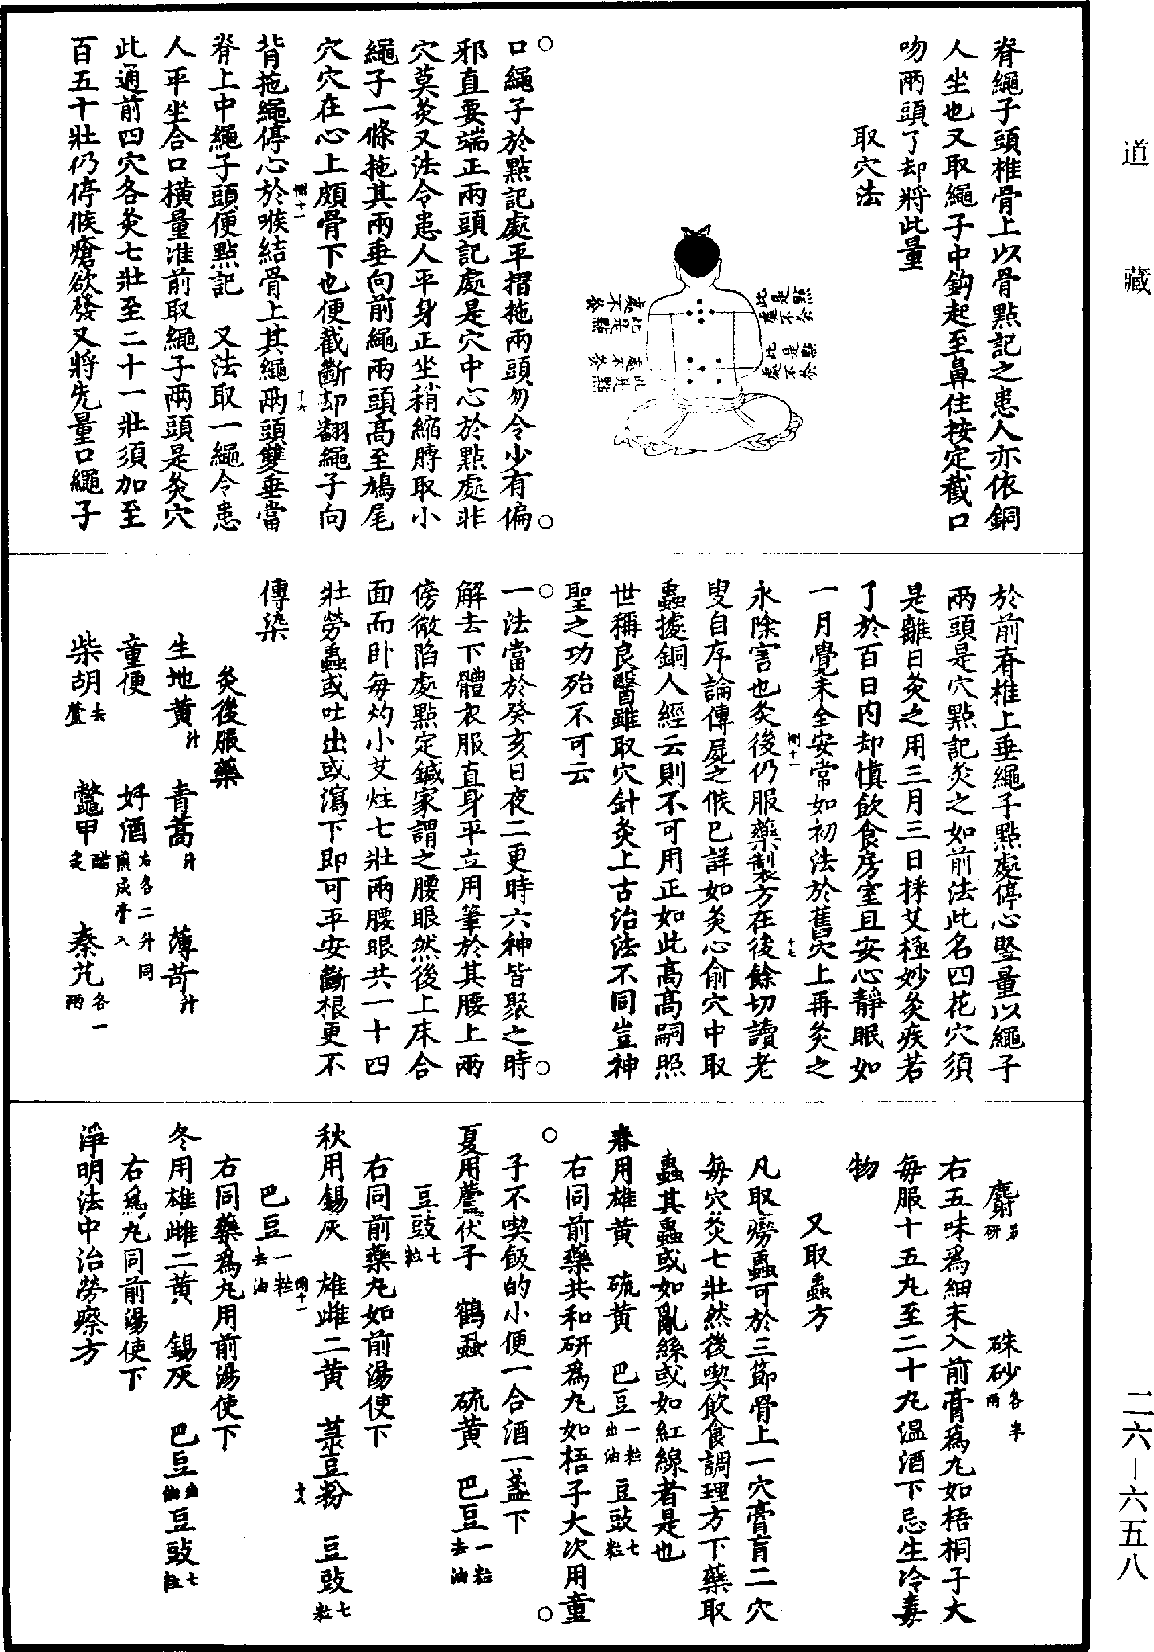 道藏
脊繩子頭椎骨上以骨點記之患人亦依銅
人坐也又取繩子中鈎起至鼻住按定截口
吻兩頭了却將此量
取穴法
此是點
處不灸
此是點
處不灸
此是點
處不灸
此是點
處不灸
口繩子於點記處平摺拖兩頭勿令少有偏
邪直要端正兩頭記處是穴中心於點處非
穴莫灸又法令患人平身正坐稍縮膊取小
繩子一條拖其兩垂向前繩兩頭高至鳩尾
穴穴在心上頗骨下也便截斷却翻繩子向
背拖繩停心於喉結骨上其繩兩頭雙垂當
脊上中繩子頭便點記　又法取一繩令患
人平坐合口橫量准前取繩子兩頭是灸穴
此通前四穴各灸七壯至二十一壯須加至
百五十壯仍停候瘡欲發又將先量口繩子
於前脊椎上垂繩子點處停心竪量以繩子
兩頭是穴點記灸之如前法此名四花穴須
是離日灸之用三月三日採艾極妙灸疾若
了於百日內却慎飲食房室且安心靜眠如
一月覺未全安常如初法於舊穴上再灸之
永除害也灸後仍服藥製方在後餘切讀老
叟自序論傳屍之候已詳如灸心俞穴中取
蟲據銅人經云則不可用正如此高高嗣照
世稱良醫雖取穴針灸上古治法不同豈神
聖之功殆不可云
一法當於癸亥日夜二更時六神皆聚之時
解去下體衣服直身平立用筆於其腰上兩
傍微陷處點定鍼家謂之腰眼然後上床合
面而卧每灼小艾炷七壯兩腰眼共一十四
壯勞蟲或吐出或瀉下即可平安斷根更不
傳染
灸後服藥
生地黃汁　青蒿汁　薄苛汁
童便　好酒右各二升同煎成膏入
柴胡去蘆　鼈甲醋炙　秦艽各一兩
麝另研　硃砂各半兩
右五味爲細末入前膏爲丸如梧桐子大
每服十五丸至二十丸溫酒下忌生冷毒
物
又取蟲方
凡取癆蟲可於三節骨上一穴膏肓二穴
每穴灸七壯然後喫飲食調理方下藥取
蟲其蟲或如亂絲或如紅線者是也
春用雄黃　硫黃　巴豆一粒出油　豆豉七粒
右同前藥共和研爲丸如梧子大次用童
子不喫飯的小便一合酒一盞下
夏用薦伏子　鶴蝨　硫黃　巴豆一粒去油
豆豉七粒
右同前藥丸如前湯使下
秋用錫灰　雄雌二黃　菉豆粉　豆豉七粒
巴豆一粒去油
右同藥爲丸用前湯使下
冬用雄雌二黃　錫灰　巴豆　豆豉七粒
右爲丸同前湯使下
淨明法中治勞瘵方
二六—六五八